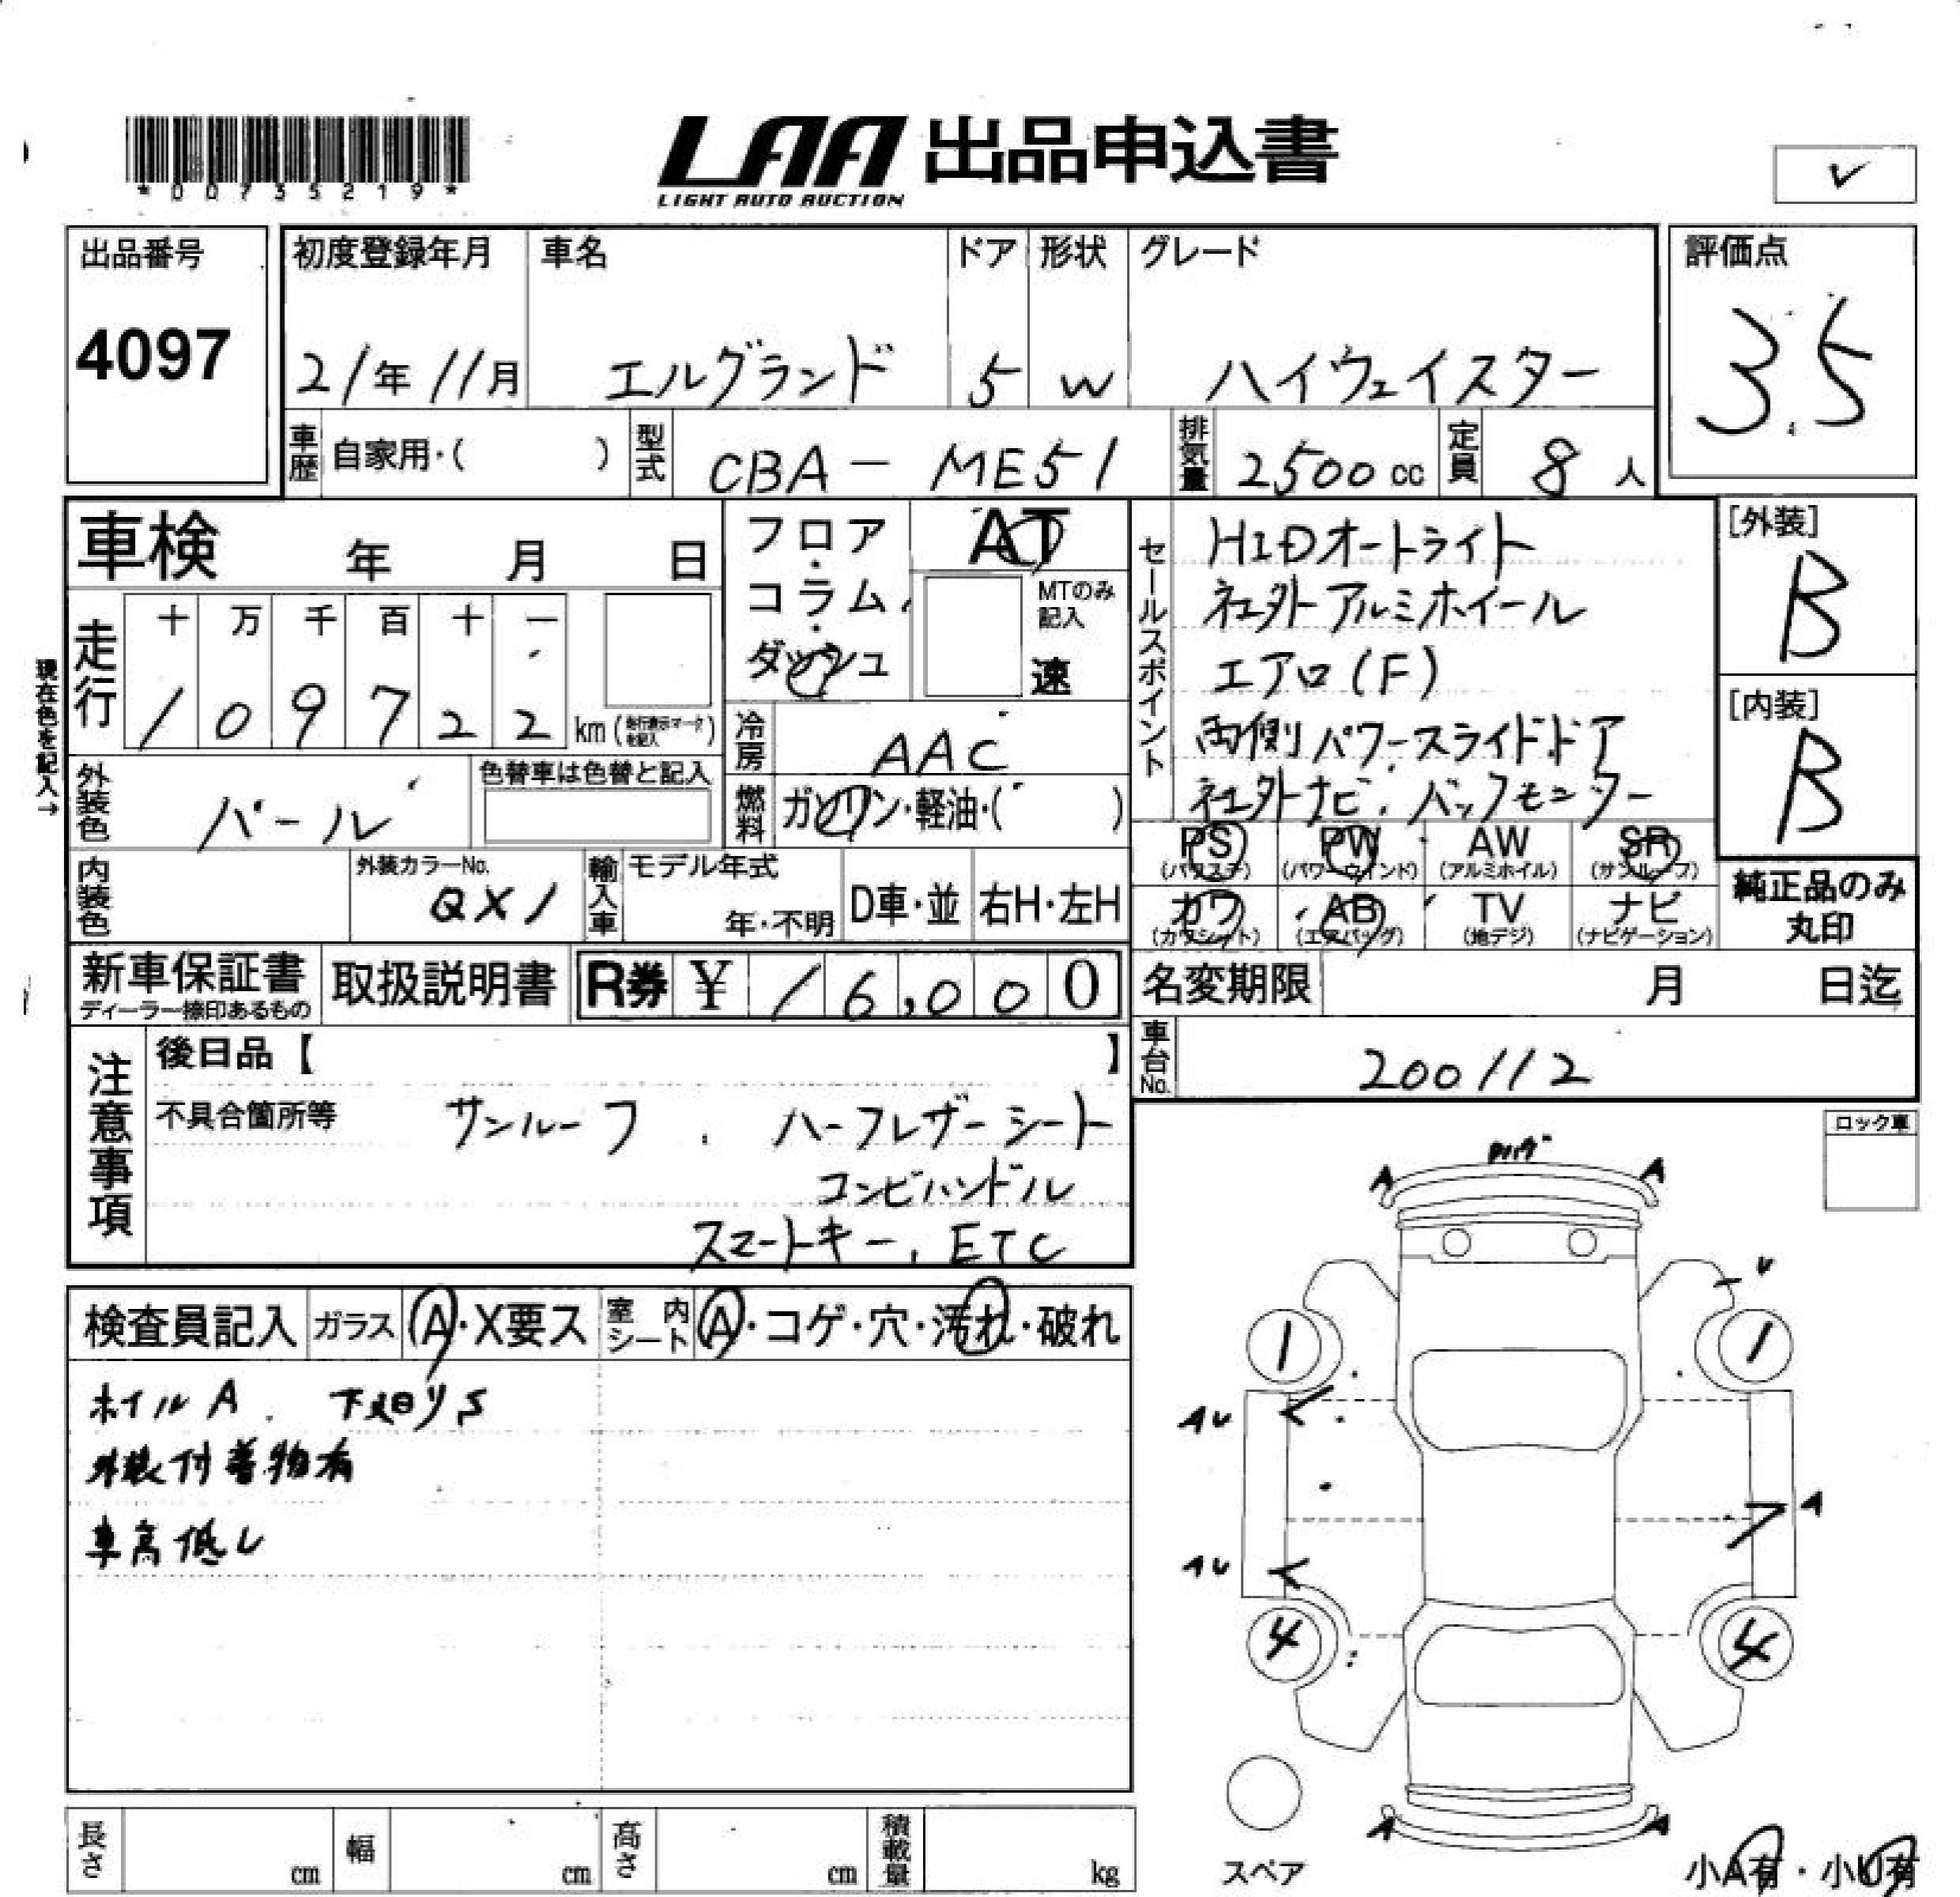 *00735219*
LAA 出品申込書
LIGHT AUTO AUCTION
✓
出品番号
4097
初度登録年月
21年 11月
車名
エルグランド
ドア
5
形状
W
グレード
ハイウェイスター
評価点
3.5
車歴 自家用・( )
型式 CBA - ME51
排気量 2500 cc
定員 8 人
車検 年 月 日
フロア・コラム・ダッシュ
AT
MTのみ記入
速
セールスポイント
HIDオートライト
社外アルミホイール
エアロ(F)
両側パワースライドドア
社外ナビ、バックモニター
[外装]
B
[内装]
B
現在色を記入→
走行
十 万 千 百 十 一
1 0 9 7 2 2 km (走行表示マークを記入)
冷房 AAC
外装色 パール
色替車は色替と記入
燃料 ガソリン・軽油・( )
PS (パワステ)
PW (パワーウインド)
AW (アルミホイル)
SR (サンルーフ)
カワ (カワシート)
AB (エアバッグ)
TV (地デジ)
ナビ (ナビゲーション)
純正品のみ
丸印
内装色
外装カラーNo.
QX1
輸入車
モデル年式
年・不明
D車・並
右H・左H
新車保証書
ディーラー捺印あるもの
取扱説明書
R券 ¥ 16,000
名変期限 月 日迄
車台No. 200112
注意事項
後日品【 】
不具合箇所等
サンルーフ、ハーフレザーシート
コンビハンドル
スマートキー、ETC
ロック車
検査員記入
ガラス A・X要ス
室内シート A・コゲ・穴・汚れ・破れ
ホイルA、下廻りS
外装付着物有
車高低し
A
A
U
1
1
AU
A
AU
4
4
A
A
スペア
小A有・小U有
長さ cm
幅 cm
高さ cm
積載量 kg